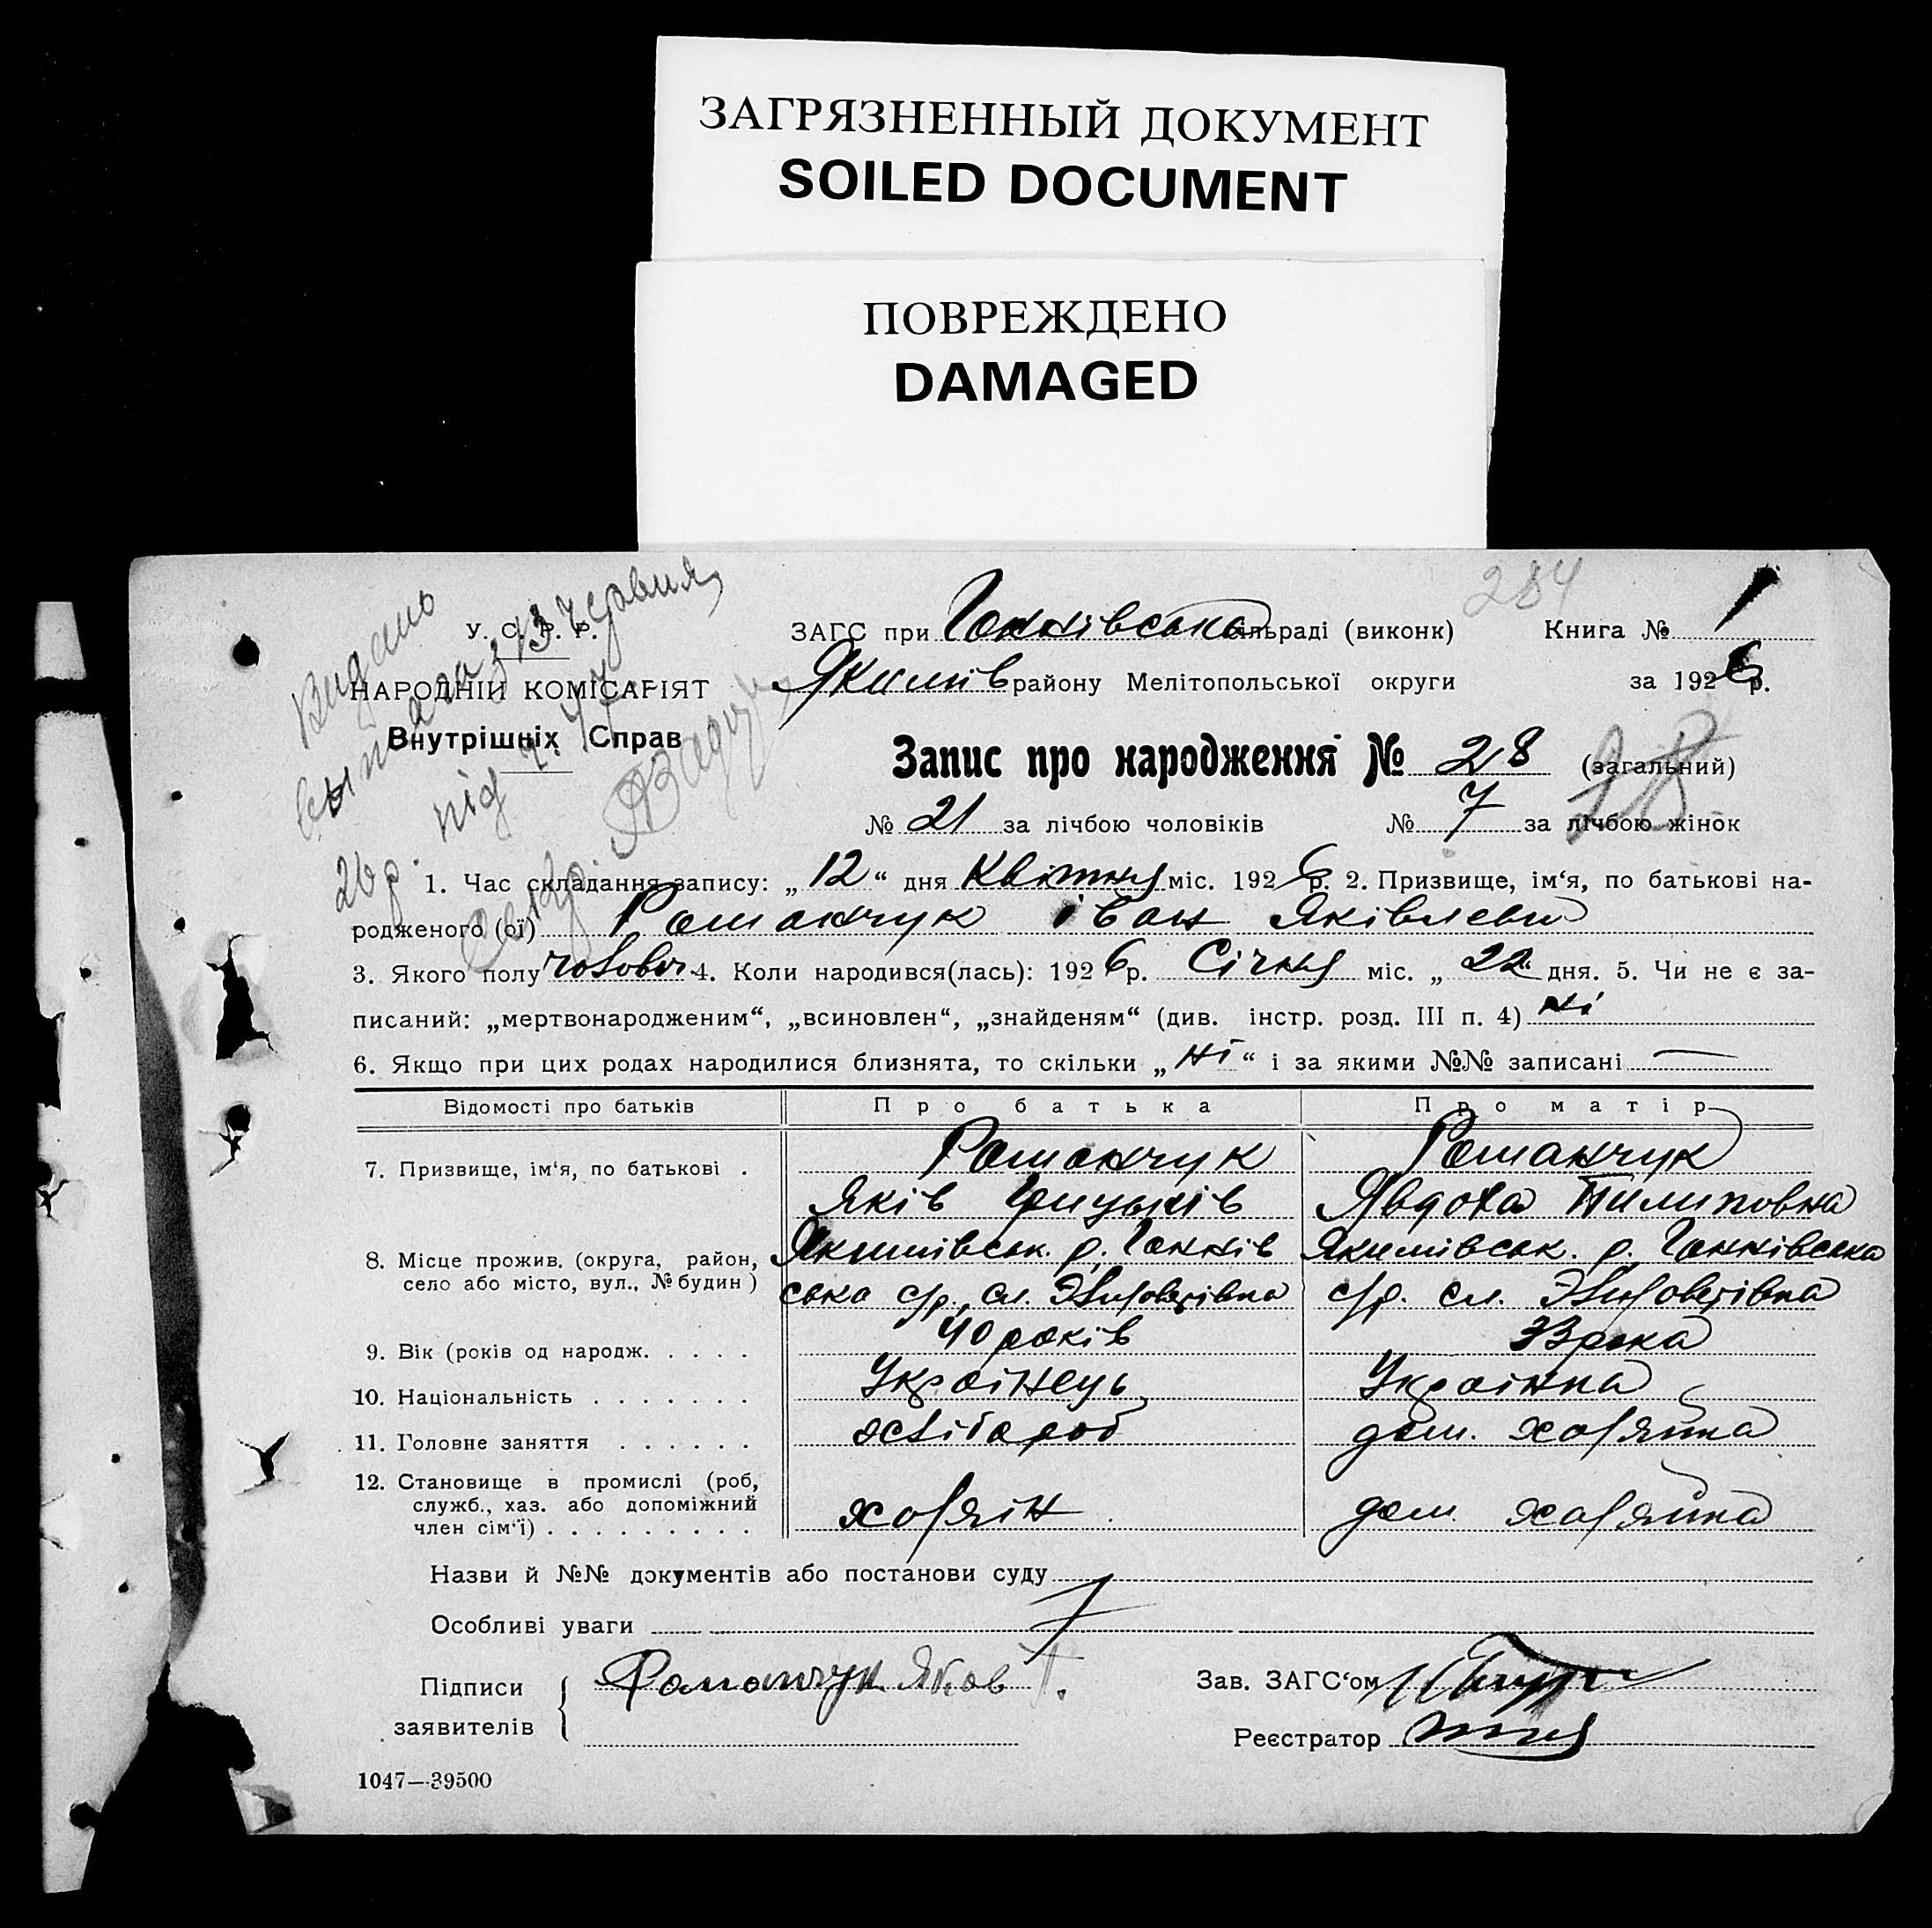 ЗАГРЯЗНЕННЫЙ ДОКУМЕНТ
SOILED DOCUMENT
ПОВРЕЖДЕНО
DAMAGED
284
Видано
вытяга з 13 червня
26 р. під ч. 47
У. С. Р. Р.
НАРОДНІЙ КОМІСАРІЯТ
Внутрішніх Справ
ЗАГС при Ганнівська сільраді (виконк) Книга № 1
Якимів району Мелітопольської округи за 1926 р.
Запис про народження № 28 (загальний)
28
№ 21 за лічбою чоловіків № 7 за лічбою жінок
1. Час складання запису: „12“ дня Квітня міс. 1926 р. 2. Призвище, ім‘я, по батькові на-
родженого (ої) Романчук іван Яківлеви
3. Якого полу чоловіч. 4. Коли народився(лась): 1926 р. Січня міс. „22“ дня. 5. Чи не є за-
писаний: „мертвонародженим“, „всиновлен“, „знайденям“ (див. інстр. розд. III п. 4) ні
6. Якщо при цих родах народилися близнята, то скільки „ні“ і за якими №№ записані —
Відомості про батьків Про батька Про матір
7. Призвище, ім‘я, по батькові . Романчук Романчук
Яків Грицьків Явдоха Пилиповна
8. Місце прожив. (округа, район, Якимівськ. р. Ганнів Якимівськ. р. Ганнівська
село або місто, вул., № будин) ська с/р., сл. Элизоветівка с/р. сл. Элизоветівка
9. Вік (років од народж. . . . . 40 років 33 рока
10. Національність . . . . . . . Українець Українка
11. Головне заняття . . . . . . хлібороб дом. хозяйка
12. Становище в промислі (роб,
служб., хаз. або допоміжний
член сім‘ї) . . . . . . . . . хозяін дом. хозяйка
Назви й №№ документів або постанови суду
Особливі уваги
Підписи Романчук Яков Г. Зав. ЗАГС‘ом
заявителів Реєстратор
1047—39500